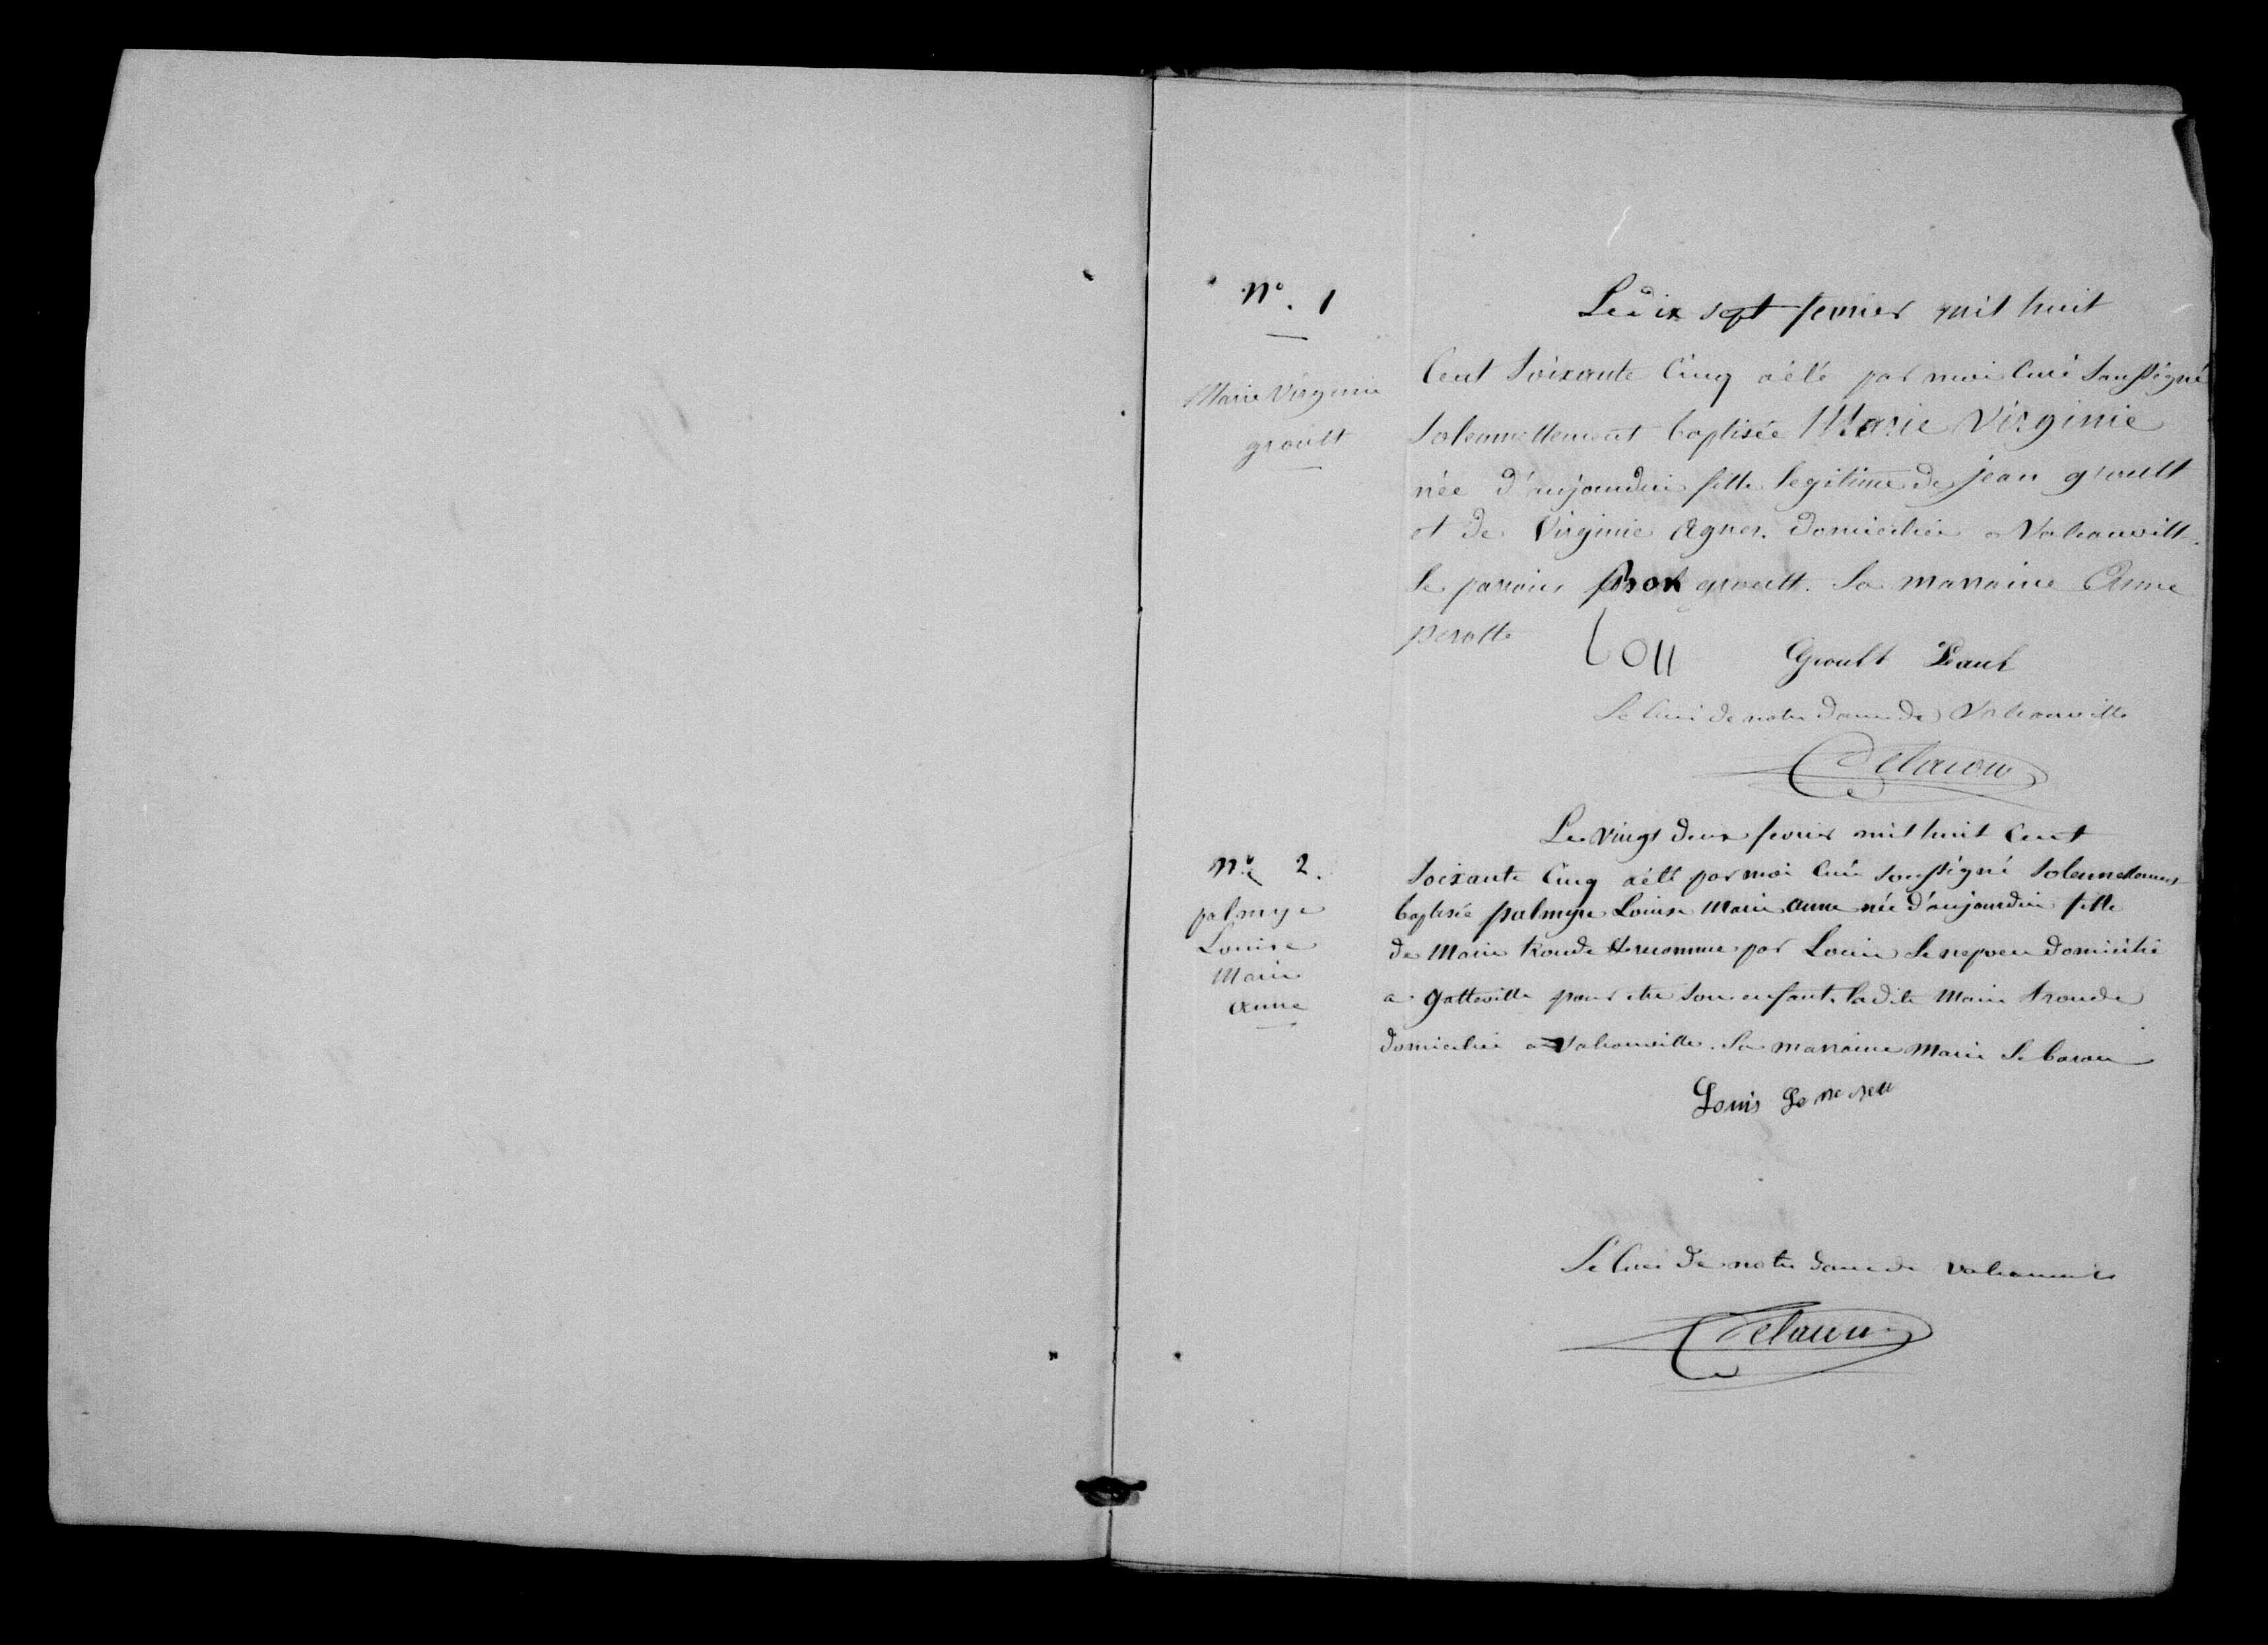 N°. 1
Marie Virginie
groult
Le dix sept fevrier mil huit
Cent Soixante Cinq a été par moi Curé Soussigné
Solennellement baptisée Marie Virginie
née d'aujourdui fille legitime de jean groult
et de Virginie Agnes. domiciliée a Valcanvill.
le parrain groult. La marraine Anne
perotte
Groult Paul
Le Curé de notre dame de Valcanville
Delacour
N° 2.
palmyre
Louise
Marie
anne
Le Vingt deux fevrier mil huit Cent
Soixante Cinq a été par moi Curé soussigné Solennellement
baptisée palmyre Louise Marie anne née d'aujourdui fille
de Marie tronde et reconnue par Louis Lenepveu domicilié
a gatteville pour etre son enfant. ladite Marie tronde
domiciliée a Valcanville. La marraine Marie Le baron
Louis Le
Le Curé de notre dame de Valcanville
Delacour